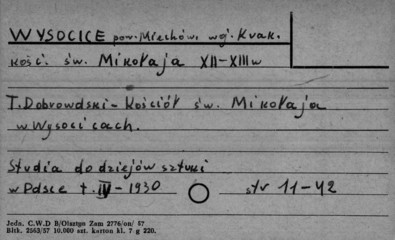 WYSOCICE pow. Miechów, woj. Krak.
kość. św. Mikołaja XII-XIII w
T. Dobrowolski - Kościół św. Mikołaja
w Wysocicach.
Studia do dziejów sztuki
w Polsce t. IV - 1930 str 11-42
Jedn. C.W.D B/Olsztyn Zam 2776/on/ 57
Bltk. 2563/57 10.000 szt. karton kl. 7 g 220.